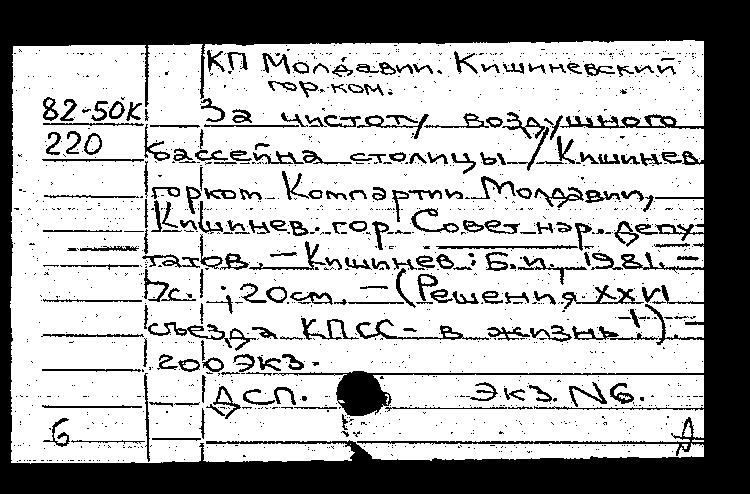 КП Молдавии. Кишиневский
гор. ком.
82-50К За чистоту воздушного
220 бассейна столицы / Кишинев.
горком Компартии Молдавии,
Кишинев. гор. Совет нар. депу-
татов. — Кишинев : Б.и., 1981. —
7с. ; 20см. — (Решения XXVI
съезда КПСС - в жизнь!). —
200 экз.
ДСП. Экз. N6.
6 А